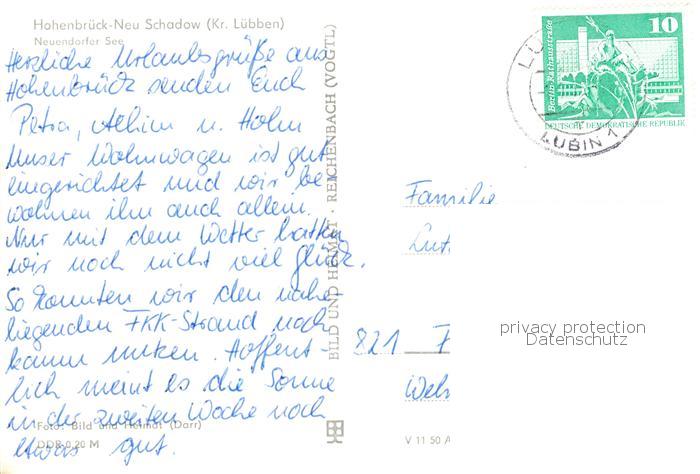 Hohenbrück-Neu Schadow (Kr. Lübben)
Neuendorfer See
Herzliche Urlaubsgrüße aus
Hohenbrück senden Euch
Petra, Achim u. Holm
Unser Wohnwagen ist gut
eingerichtet und wir be-
wohnen ihn auch allein.
Nur mit dem Wetter hatten
wir noch nicht viel Glück.
So konnten wir den nahe-
liegenden FKK-Strand noch
kaum nutzen. Hoffent-
lich meint es die Sonne
in der zweiten Woche noch
etwas gut.
Foto: Bild und Heimat (Darr)
DDR 0,20 M
BILD UND HEIMAT · REICHENBACH (VOGTL)
10
Berlin-Rathausstraße
DEUTSCHE DEMOKRATISCHE REPUBLIK
LUBIN 1
Familie
821 F
V 11 50 A
privacy protection
Datenschutz